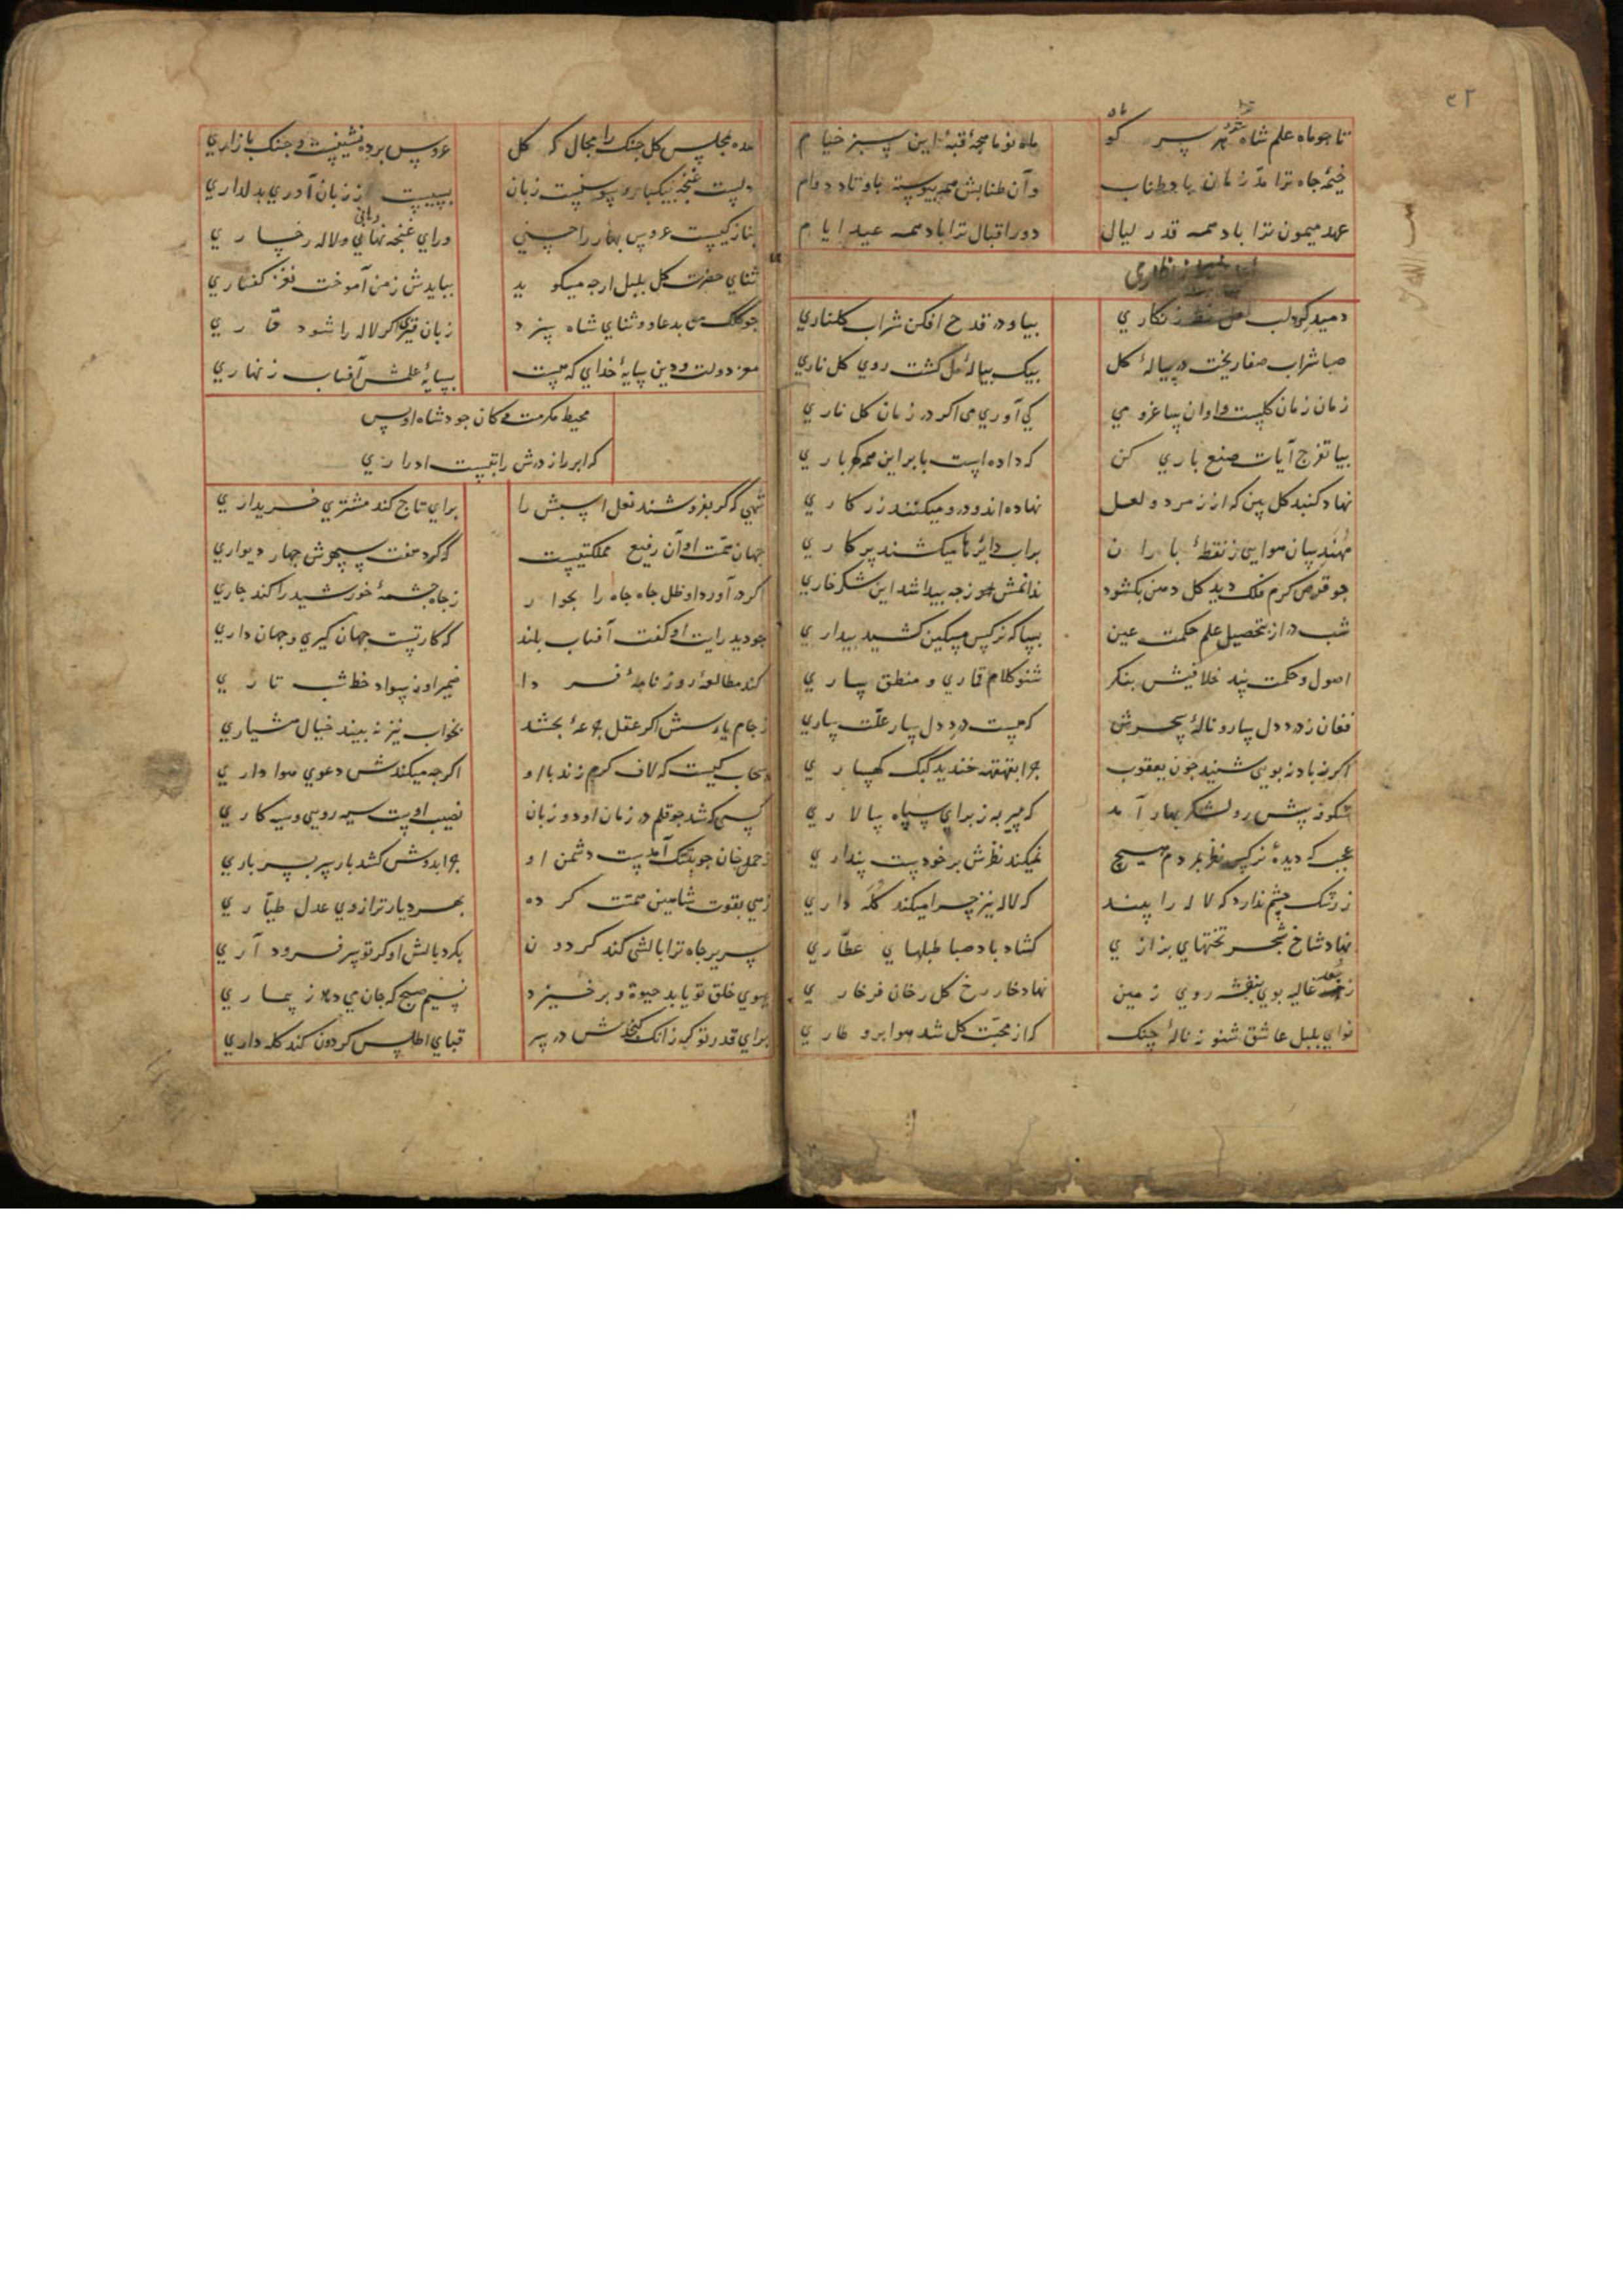 ۴۲
تا چو ماه علم شاه شود هر سر ماه
ماه نو ماهچهٔ قبهٔ این سبز خیام
خیمهٔ جاه ترا مدّ زمان باد طناب
وآن طنابش همه پیوسته باوتاد دوام
عهد میمون ترا باد همه قدر لیال
دور اقبال ترا باد همه عید ایام
دمید گرد لب خط زنکاري
بیا و در قدح افکن شراب کلناري
صبا شراب صفا ریخت در پیالهٔ کل
بیک پیالهٔ مل کشت روي کل ناري
زمان زمان کلست و اوان ساغر و مي
کي آوري مي اکر در زمان کل ناري
بیا تفرج آیات صنع باري کن
که داده است بابر این همه کهرباري
نهاد کنبد کل بین که از زمرد و لعل
نهاده اند و درو میکنند زرکاري
مهندسان هوایی ز نقطهٔ باران
برآب دایرها میکشند پرکاري
چو قرص کرم فلک دید کل دهن بکشود
ندانمش هوز چه پیدا شد این شکرخاري
شب دراز بتحصیل علم حکمت عین
بسا که نرکس مسکین کشید بیداري
اصول و حکمت پند خلافیش بنکر
شنو کلام قاري و منطق ساري
فغان ز درد دل سار و نالهٔ سحرش
که هست درد دل سار علّت ساري
اکر نه باد ز بویی شنید چون یعقوب
چرا بقهقهه خندید کبک کهساري
شکوفه پیش رو لشکر بهار آمد
که پیر به ز براي سپاه سالاري
عجب که دیدهٔ نرکس نظر بمردم هیچ
نمیکند نظرش بر خودست پنداري
ز رشک چشم ندارد که لاله را بیند
که لاله نیز چرا میکند کله داري
نهاد شاخ شجر تختهاي بزازي
کشاد باد صبا طبلهاي عطّاري
ز جعد غالیه بوي بنفشه روي زمین
نهاد خار رخ کل رخان فرخاري
نواي بلبل عاشق شنو ز نالهٔ چنک
که از محبّت کل شد هوا برو طاري
مده بمجلس کل چنک را مجال که کل
عروس پرده نشینست و چنک بازاري
دلست غنچه بیکباره و سوسنست زبان
بسیست ز زبان آوري بدلداري
بناز کیست عروس بهار را چینی
وراي غنچه دهانی و لاله رخساري
ثناي حضرت کل بلبل ارچه میکوید
ببایدش ز من آموخت نغز کفتاري
چو کلک من بدعا و ثناي شاه سزد
زبان قمري اکر لاله را شود قاري
معز دولت و دین سایهٔ خداي که هست
بسایهٔ علمش آفتاب زنهاري
محیط مکرمت و کان جود شاه اویس
که ابر راز درش راتبیست ادراري
شهی که کر بفروشند نعل اسبش را
براي تاج کند مشتري خریداري
جهان همّت او آن رفیع مملکتیست
که کرد هفت سپهرش چهار دیواري
اکر درآورد او ظل جاه جاه را بجوار
ز چاه چشمهٔ خورشید را کند جاري
چو دید رایت او کفت آفتاب بلند
که کار تست جهان کیري و جهان داري
کند مطالعهٔ روزنامهٔ فردا
ضمیر او ز سواد خط شب تاري
ز جام پاسش اکر عقل جرعهٔ بخشد
بخواب نیز نه بیند خیال هشیاري
سحاب کیست که لاف کرم زند با او
اکرچه میکندش دعوي هواداري
کسی که شد چو قلم در زمان او دو زبان
نصیب اوست سیه رویی و سیه کاري
ز حمل جان چو بتنک آمدست دشمن او
چرا بدوش کشد بار سر بسرباري
زهي بقوت شاهین همّت کرده
بهر دیار ترازوي عدل طیّاري
سریر جاه ترا بالشی کند کردون
بکرد بالش او کر تو سر فرود آري
ببوي خلق تو یابد حیوة و برخیزد
نسیم صبح که جان مي دهد ز بیماري
براي قدر تو کر زانک کنجدش در سر
قباي اطلس کردون کند کله داري